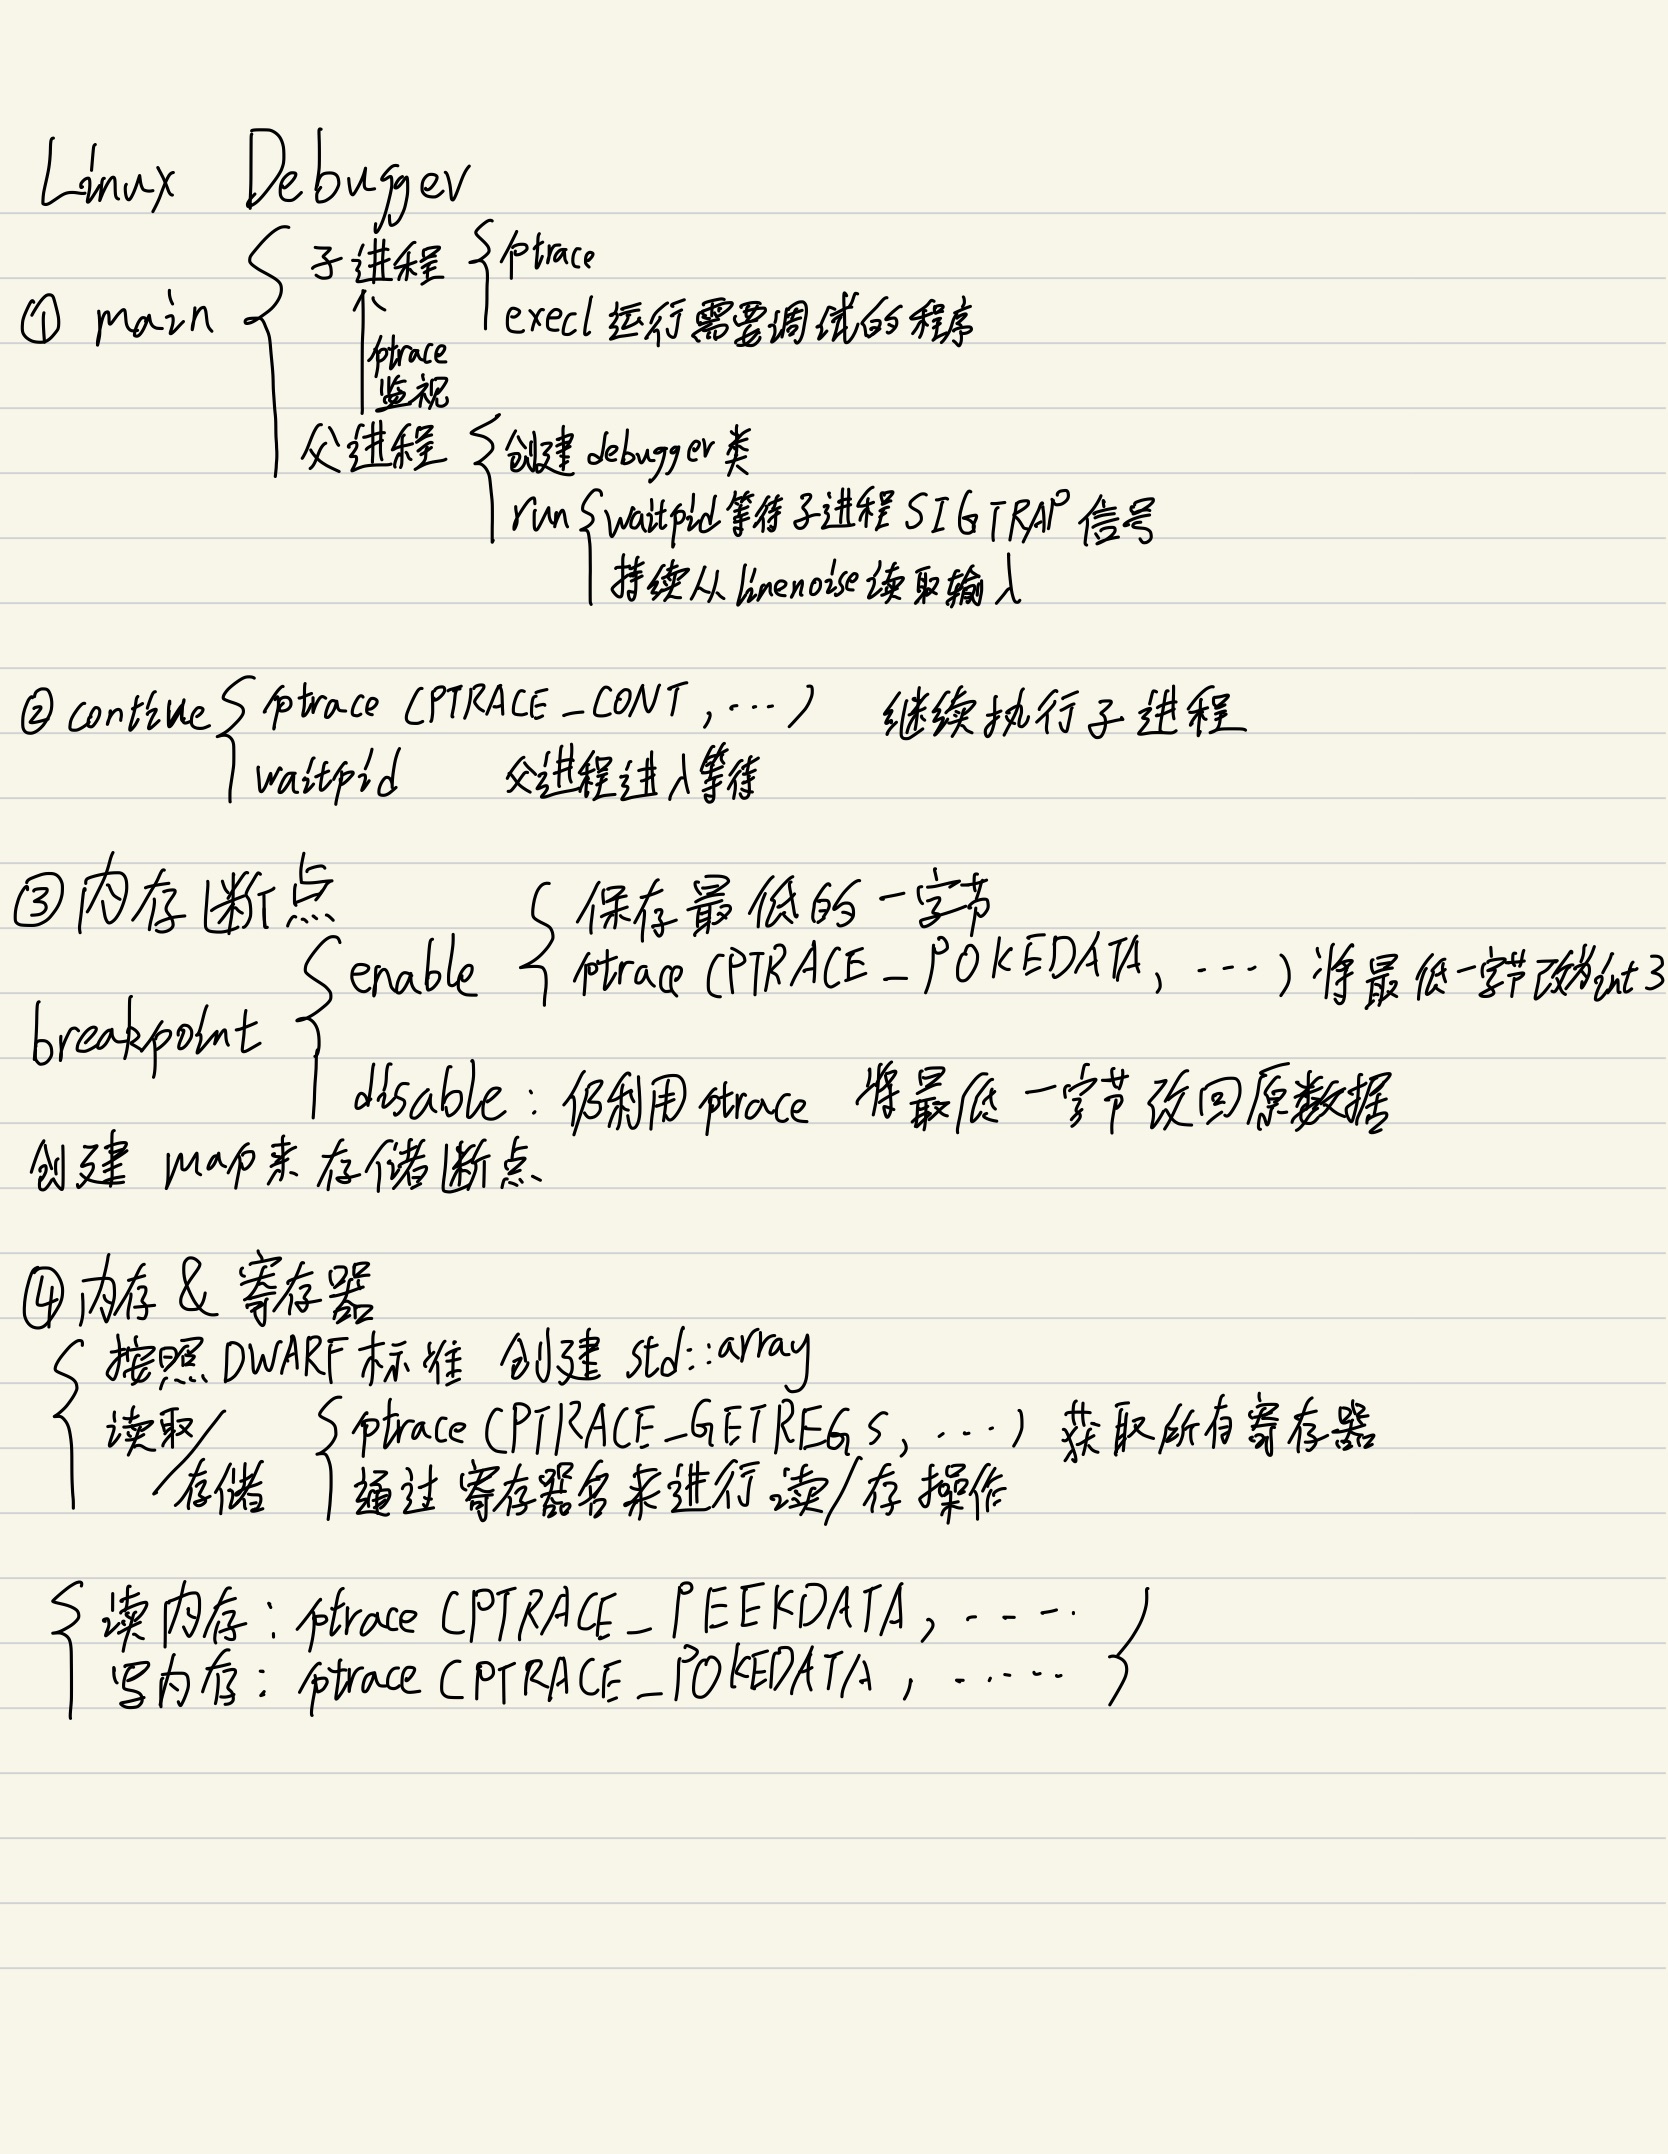 Linux Debugger
① main
子进程
ptrace
execl 运行需要调试的程序
ptrace
监视
父进程
创建 debugger 类
run waitpid 等待子进程 SIGTRAP 信号
持续从 linenoise 读取输入
② contine ptrace (PTRACE_CONT, ...) 继续执行子进程
waitpid 父进程进入等待
③ 内存断点
breakpoint
enable
保存最低的一字节
ptrace (PTRACE_POKEDATA, ...) 将最低一字节改为int 3
disable: 仍利用 ptrace 将最低一字节改回原数据
创建 map来存储断点
④ 内存 & 寄存器
按照 DWARF 标准 创建 std::array
读取/存储
ptrace (PTRACE_GETREGS, ...) 获取所有寄存器
通过寄存器名来进行读/存操作
读内存: ptrace (PTRACE_PEEKDATA, ......
写内存: ptrace (PTRACE_POKEDATA, ......